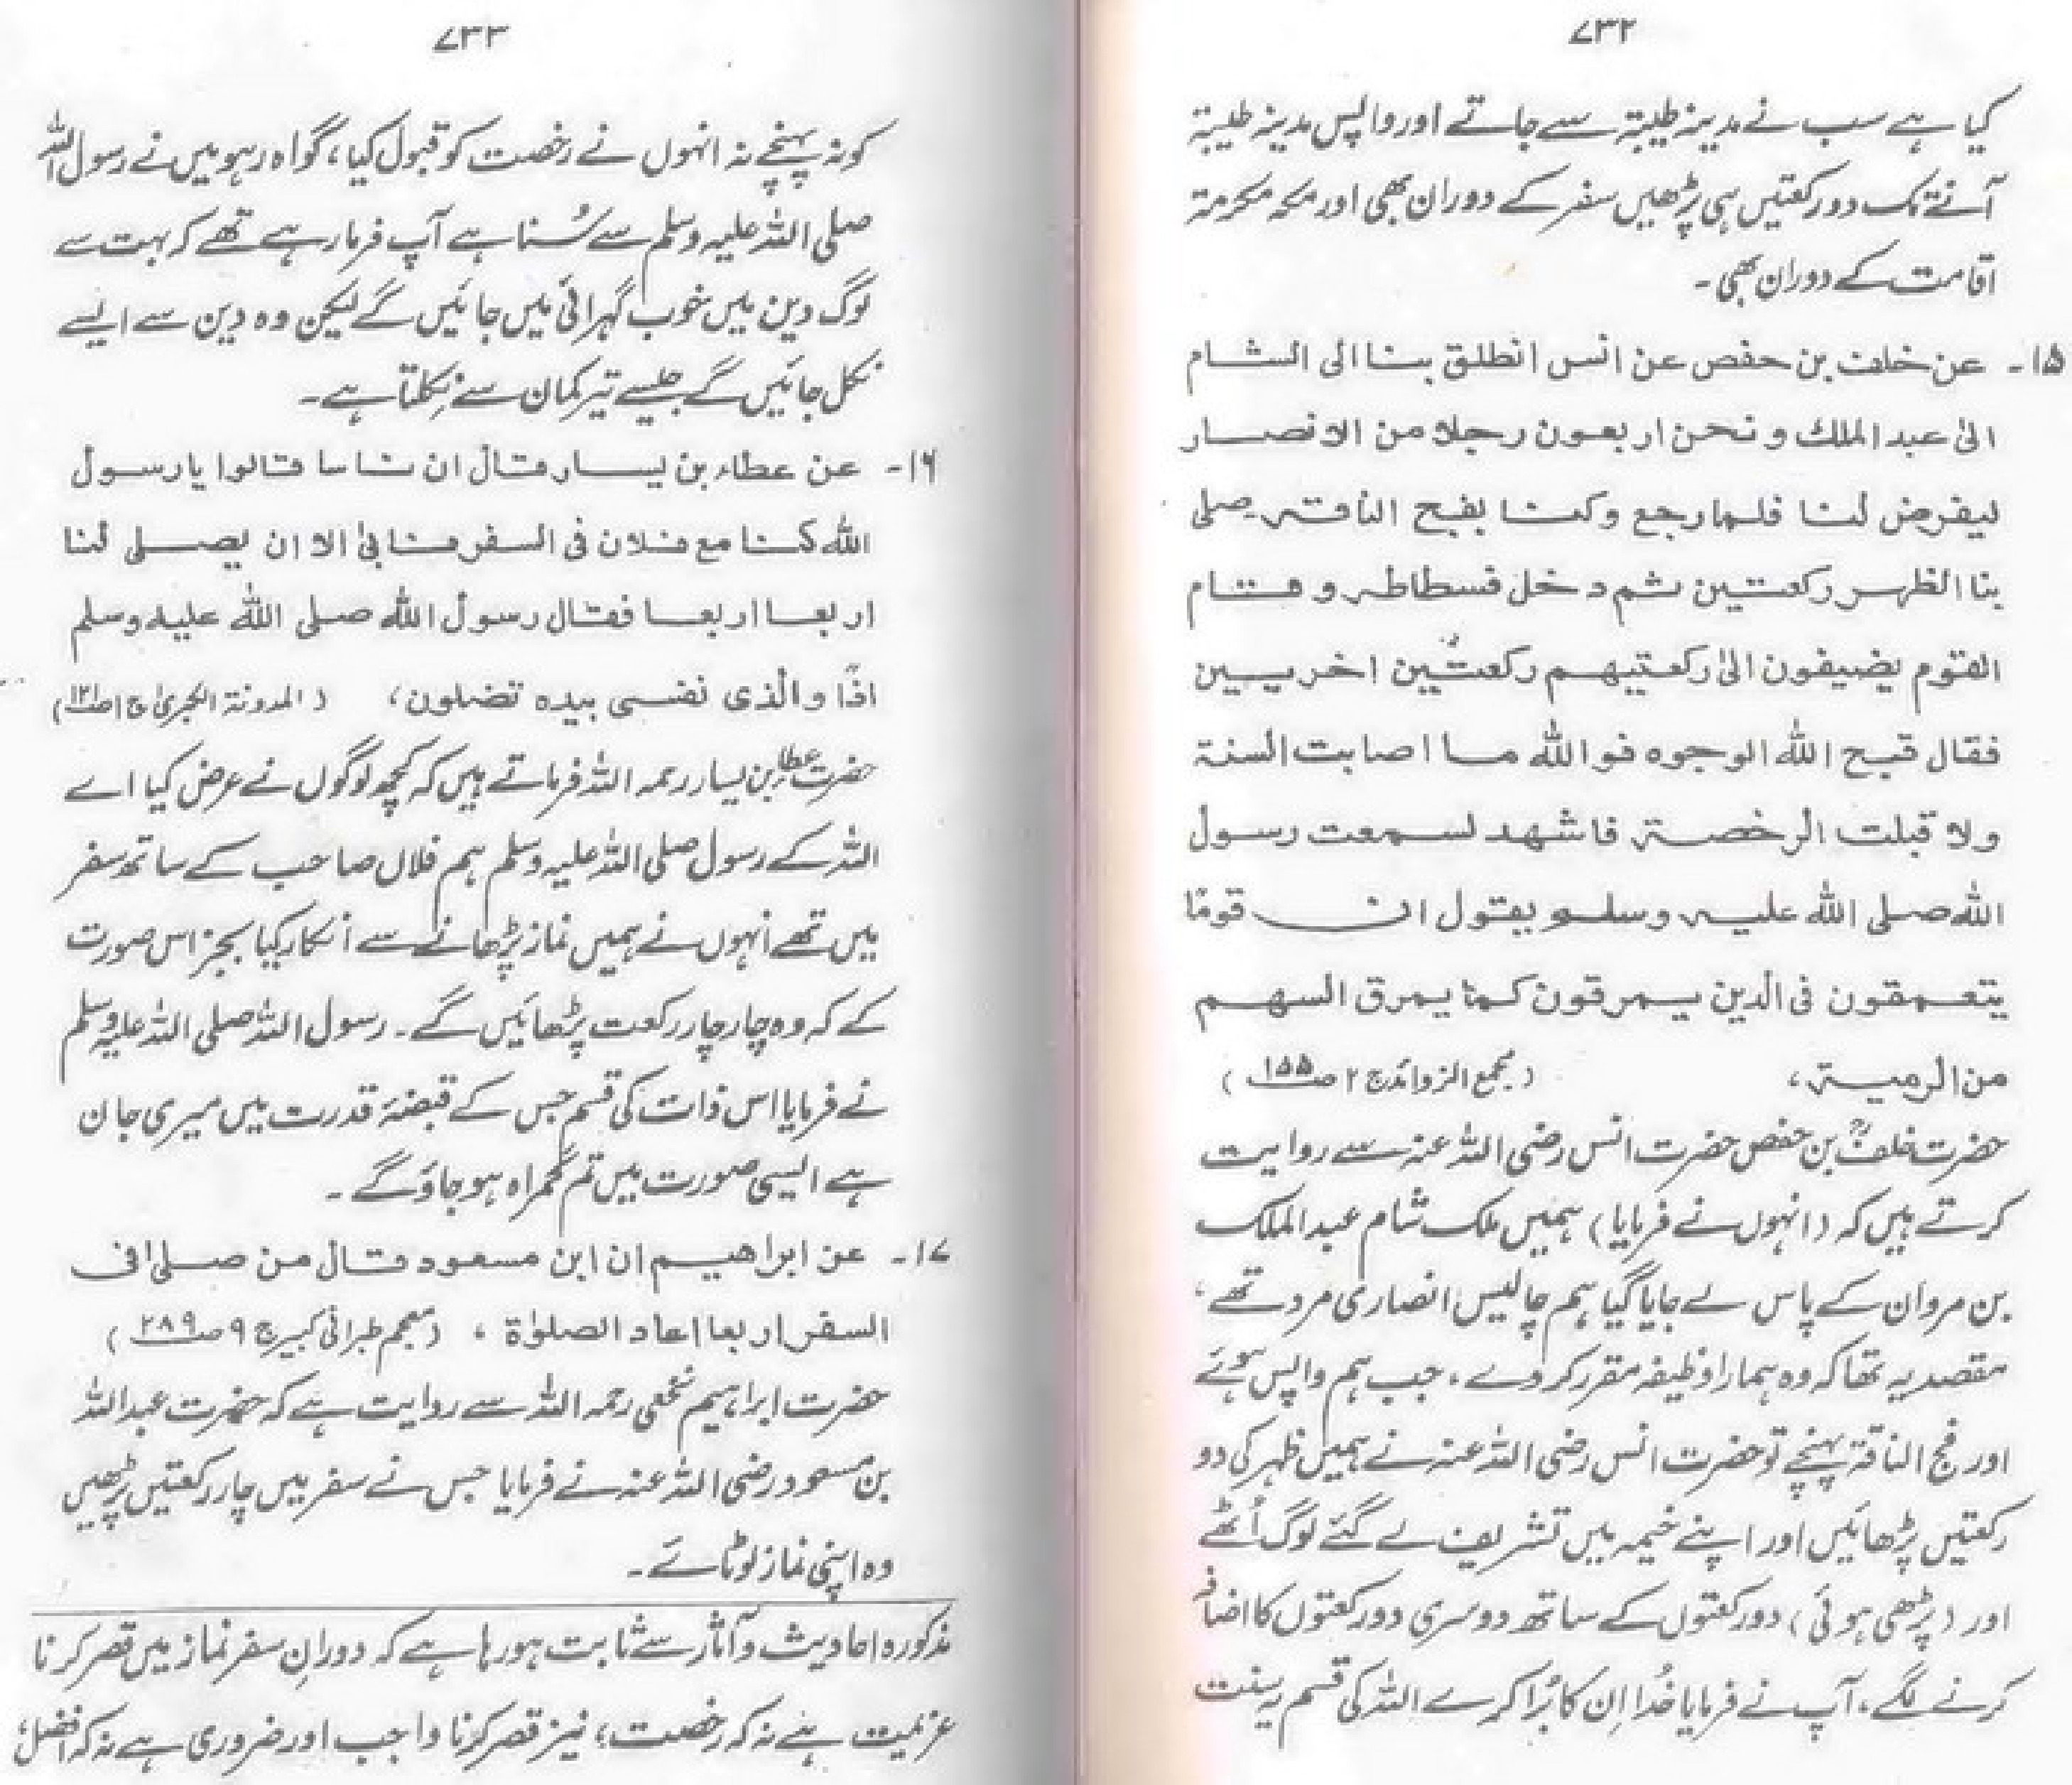 ۷۳۲
کیا ہے سب نے مدینہ طیبۃ سے جاتے اور واپس مدینہ طیبۃ
آنے تک دو رکعتیں ہی پڑھیں سفر کے دوران بھی اور مکہ مکرمۃ
اقامت کے دوران بھی ۔
۱۵۔ عن خلف بن حفص عن انس انطلق بنا الی الشام
الیٰ عبد الملک و نحن اربعون رجلا من الانصار
لیفرض لنا فلما رجع وکنا بفج الناقۃ صلی
بنا الظہر رکعتین ثم دخل فسطاطہ و قام
القوم یضیفون الیٰ رکعتیہم رکعتین اخریین
فقال قبح اللہ الوجوہ فواللہ ما اصابت السنۃ
ولا قبلت الرخصۃ فاشهد لسمعت رسول
اللہ صلی اللہ علیہ وسلم یقول ان قومًا
یتعمقون فی الدین یمرقون کما یمرق السهم
من الرمیۃ، (مجمع الزوائد ج ۲ ص ۱۵۵)
حضرت خلفؒ بن حفص حضرت انس رضی اللہ عنہ سے روایت
کرتے ہیں کہ (انہوں نے فرمایا) ہمیں ملک شام عبد الملک
بن مروان کے پاس لے جایا گیا ہم چالیس انصاری مرد تھے،
مقصد یہ تھا کہ وہ ہمارا وظیفہ مقرر کر دے، جب ہم واپس ہوئے
اور فج الناقۃ پہنچے تو حضرت انس رضی اللہ عنہ نے ہمیں ظہر کی دو
رکعتیں پڑھائیں اور اپنے خیمہ میں تشریف لے گئے لوگ اُٹھے
اور (پڑھی ہوئی) دو رکعتوں کے ساتھ دوسری دو رکعتوں کا اضافہ
کرنے لگے، آپ نے فرمایا خُدا اِن کا بُرا کرے اللہ کی قسم یہ سنت
۷۳۳
کو نہ پہنچے نہ انہوں نے رخصت کو قبول کیا، گواہ رہو میں نے رسول اللہ
صلی اللہ علیہ وسلم سے سُنا ہے آپ فرما رہے تھے کہ بہت سے
لوگ دین میں خوب گہرائی میں جائیں گے لیکن وہ دین سے ایسے
نکل جائیں گے جیسے تیر کمان سے نکلتا ہے۔
۱۶۔ عن عطاء بن یسار قال ان ناسا قالوا یا رسول
اللہ کنا مع فلان فی السفر فابیٰ الا ان یصلی لنا
اربعا اربعا فقال رسول اللہ صلی اللہ علیہ وسلم
اذًا والذی نفسی بیدہ تضلون، (المدونۃ الکبریٰ ج۱ ص۱۲۱)
حضرت عطاء بن یسار رحمہ اللہ فرماتے ہیں کہ کچھ لوگوں نے عرض کیا اے
اللہ کے رسول صلی اللہ علیہ وسلم ہم فلاں صاحب کے ساتھ سفر
میں تھے اُنہوں نے ہمیں نماز پڑھانے سے اُنکار کیا بجز اس صورت
کے کہ وہ چار چار رکعت پڑھائیں گے۔ رسول اللہ صلی اللہ علیہ وسلم
نے فرمایا اس ذات کی قسم جس کے قبضۂ قدرت میں میری جان
ہے ایسی صورت میں تم گمراہ ہو جاؤ گے ۔
۱۷۔ عن ابراهیم ان ابن مسعود قال من صلی فی
السفر اربعا اعاد الصلوٰۃ، (معجم طبرانی کبیر ج ۹ ص ۲۸۹)
حضرت ابراہیم نخعی رحمہ اللہ سے روایت ہے کہ حضرت عبداللہ
بن مسعود رضی اللہ عنہ نے فرمایا جس نے سفر میں چار رکعتیں پڑھیں
وہ اپنی نماز لوٹائے ۔
مذکورہ احادیث و آثار سے ثابت ہو رہا ہے کہ دورانِ سفر نماز میں قصر کرنا
عزیمت ہے نہ کہ رخصت، نیز قصر کرنا واجب اور ضروری ہے نہ کہ افضل،